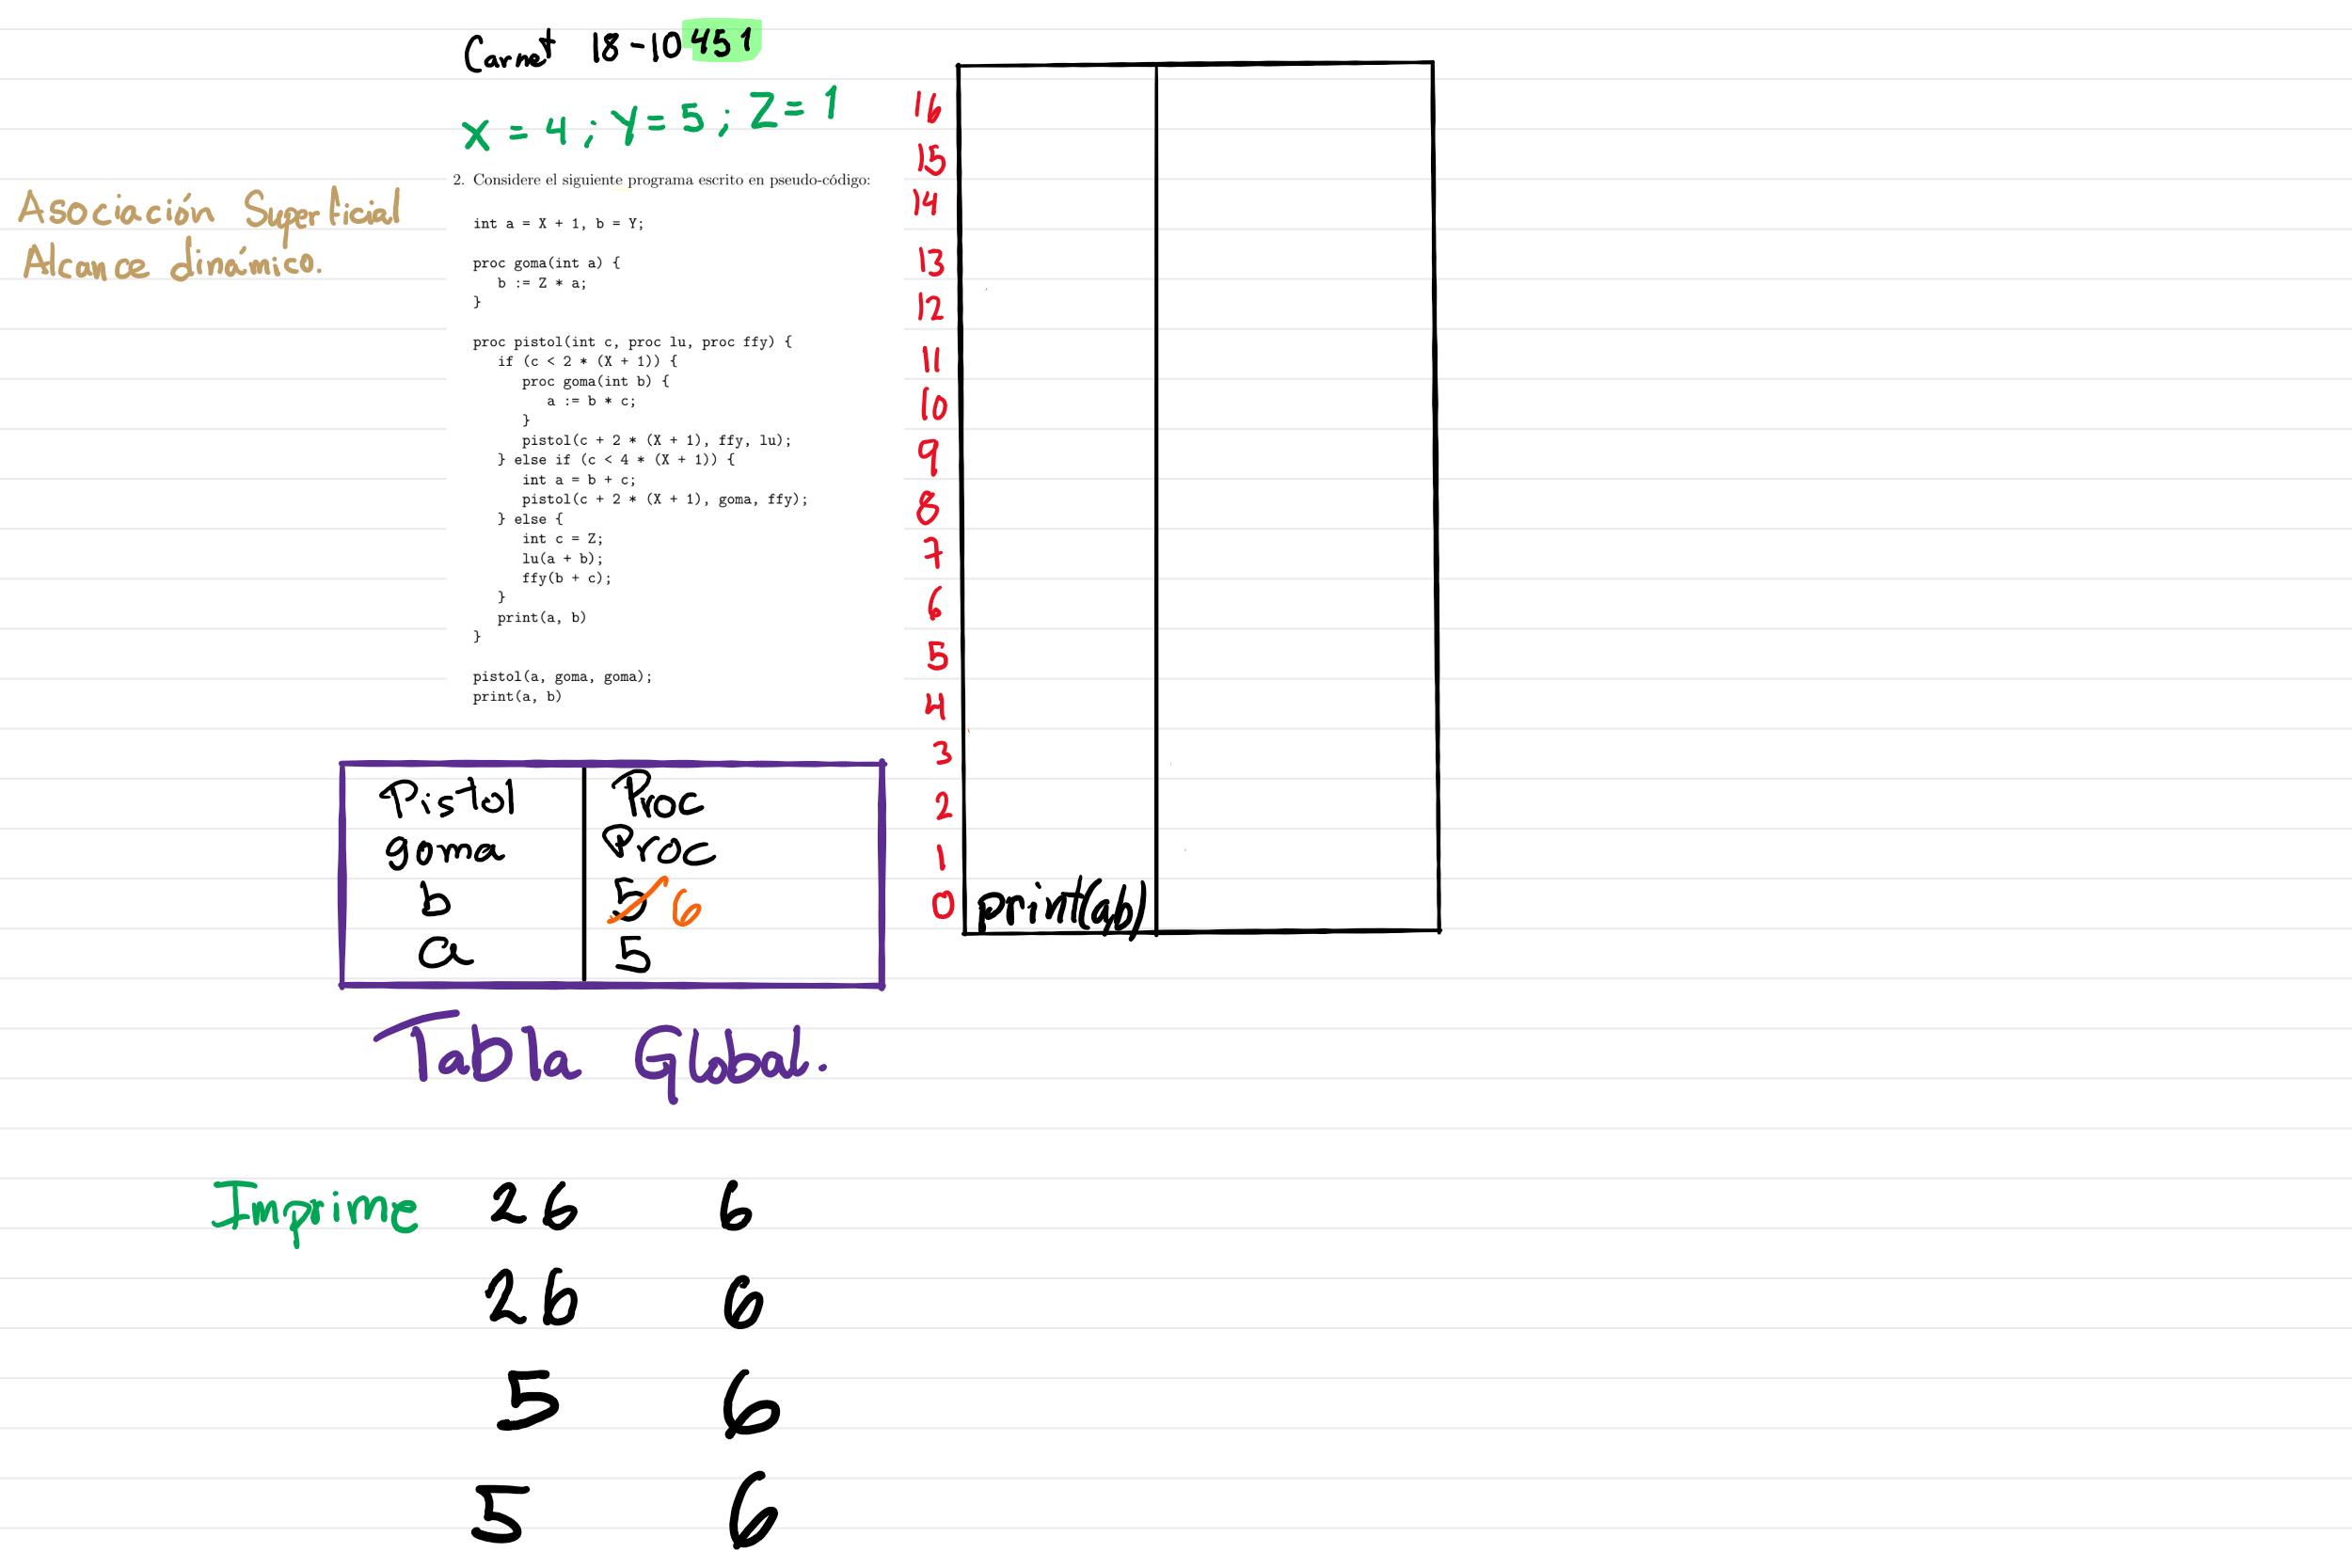 Carnet 18-10451
X = 4 ; Y = 5 ; Z = 1
Asociación Superficial
Alcance dinámico.
2. Considere el siguiente programa escrito en pseudo-código:
int a = X + 1, b = Y;
proc goma(int a) {
b := Z * a;
}
proc pistol(int c, proc lu, proc ffy) {
if (c < 2 * (X + 1)) {
proc goma(int b) {
a := b * c;
}
pistol(c + 2 * (X + 1), ffy, lu);
} else if (c < 4 * (X + 1)) {
int a = b + c;
pistol(c + 2 * (X + 1), goma, ffy);
} else {
int c = Z;
lu(a + b);
ffy(b + c);
}
print(a, b)
}
pistol(a, goma, goma);
print(a, b)
16
15
14
13
12
11
10
9
8
7
6
5
4
3
2
1
0 print(a,b)
Pistol Proc
goma Proc
b 5 6
a 5
Tabla Global.
Imprime 26 6
26 6
5 6
5 6